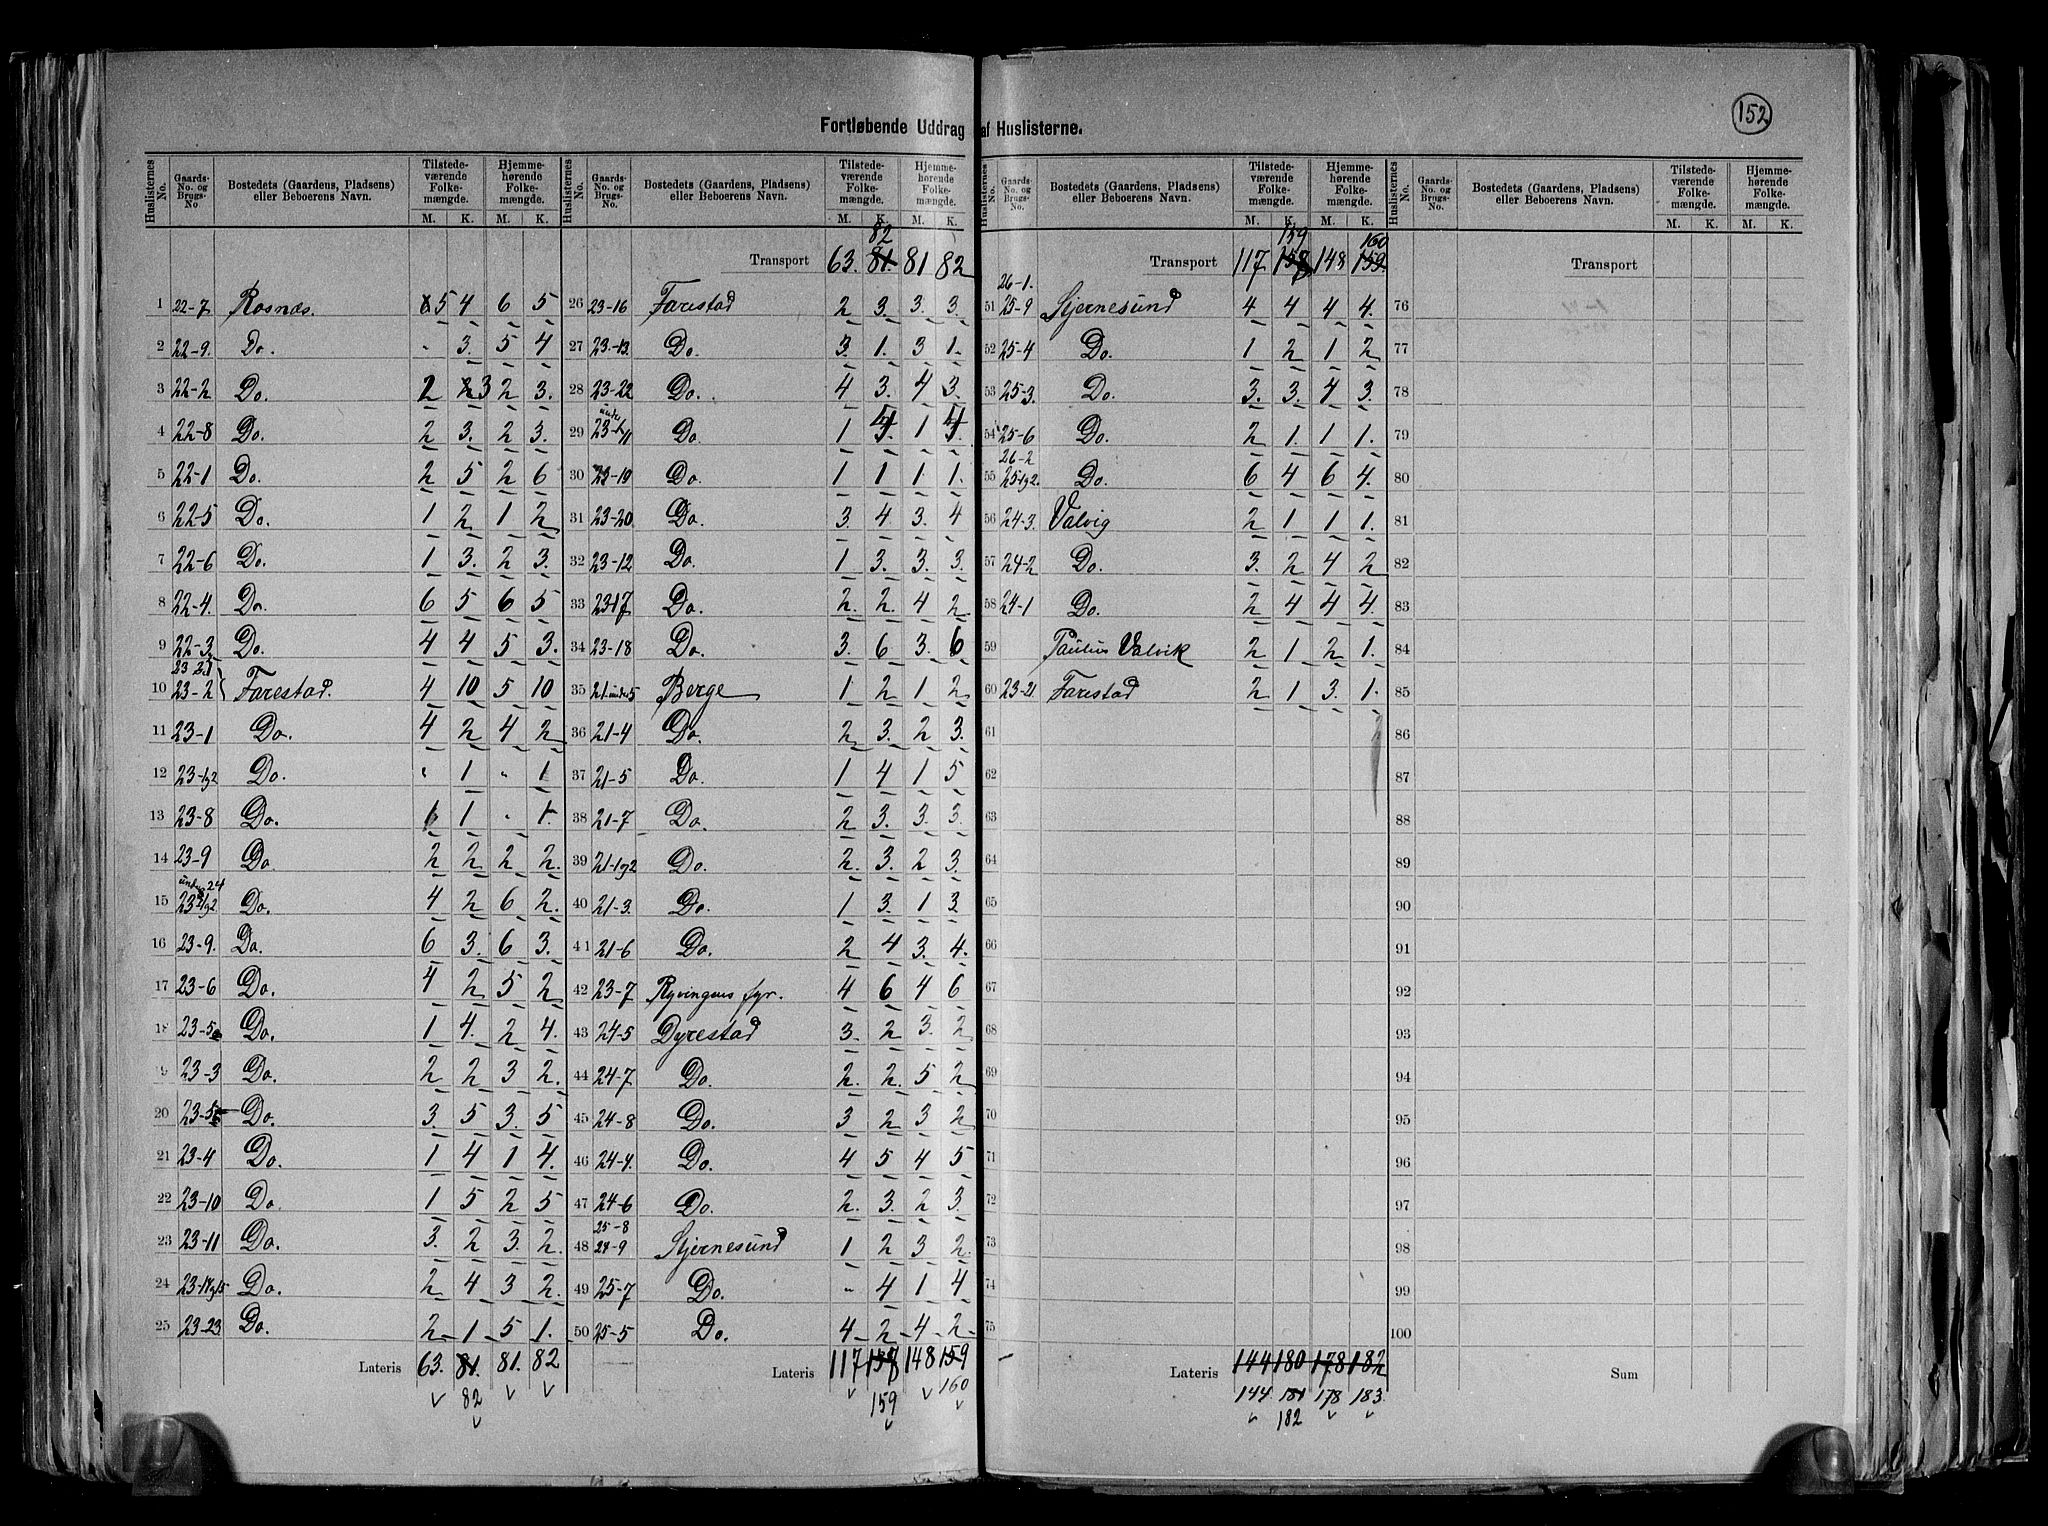 152
Fortløbende Uddrag af Huslisterne.
Huslisternes No. | Gaards-No. og Brugs-No. | Bostedets (Gaardens, Pladsens) eller Beboerens Navn. | Tilstedeværende Folkemængde. M. K. | Hjemmehørende Folkemængde. M. K.
1 22-7 Rosnæs. 5 4 6 5
2 22-9. Do. " 3. 5 4
3 22-2 Do. 2 3 2 3.
4 22-8 Do. 2 3. 2 3.
5 22-1 Do. 2 5 2 6
6 22-5 Do. 1 2 1 2
7 22-6 Do. 1 3. 2 3.
8 22-4. Do. 6 5 6 5
9 22-3 Do. 4 4 5 3.
10 23-2 Farestad. 4 10 5 10
11 23-1 Do. 4 2 4 2
12 23-1g2 Do. " 1 " 1
13 23-8 Do. 1 " 1.
14 23-9 Do. 2 2 2 2.
15 under 24 23-1g2 Do. 4 2 6 2.
16 23-9. Do. 6 3. 6 3.
17 23-6 Do. 4 2 5 2
18 23-5a Do. 1 4. 2 4.
19 23-3 Do. 2 2 3 2.
20 23-5 Do. 3. 5 3. 5
21 23-4 Do. 1 4 1 4.
22 23-10 Do. 1 5 2 5
23 23-11 Do. 3. 2 3. 2.
24 23-14g15 Do. 2 4 3 2.
25 23-23. Do. 2 1 5 1.
Lateris 63. 81. 81. 82
82
Huslisternes No. | Gaards-No. og Brugs-No. | Bostedets (Gaardens, Pladsens) eller Beboerens Navn. | Tilstedeværende Folkemængde. M. K. | Hjemmehørende Folkemængde. M. K.
82
Transport 63. 81. 81 82
26 23-16 Farestad 2 3. 3. 3.
27 23-13. Do. 3. 1. 3 1.
28 23-22 Do. 4 3. 4 3.
29 under 23-11 Do. 1 4 1 4
30 23-19 Do. 1 1 1 1.
31 23-20. Do. 3. 4 3. 4
32 23-12 Do. 1 3. 3. 3.
33 23-17 Do. 2. 2. 4 2.
34 23-18 Do. 3. 6 3. 6
35 21 under 5 Berge 1 2 1 2
36 21-4 Do. 2 3. 2 3.
37 21-5 Do. 1 4 1 5
38 21-7 Do. 2 3. 3. 3.
39 21-1g2 Do. 2. 3. 2 3.
40 21-3. Do. 1 3. 1 3
41 21-6 Do. 2 4 3. 4.
42 23-7 Ryvingens fyr. 4 6 4 6
43 24-5 Dyrestad 3. 2 3. 2
44 24-7 Do. 2. 2. 5 2
45 24-8 Do. 3 2 3 2
46 24-4. Do. 4 5 4 5
47 24-6 Do. 2. 3. 2 3.
25-8
48 24-9 Stjernesund 1 2 3 2.
49 25-7 Do. " 4 1 4
50 25-5 Do. 4 2 4 2
Lateris 117 158 148 159
159 160
Huslisternes No. | Gaards-No. og Brugs-No. | Bostedets (Gaardens, Pladsens) eller Beboerens Navn. | Tilstedeværende Folkemængde. M. K. | Hjemmehørende Folkemængde. M. K.
159 160
Transport 117. 158 148 159.
26-1.
51 25-9 Stjernesund 4 4 4 4.
52 25-4 Do. 1 2 1 2
53 25-3. Do. 3. 3. 4 3.
54 25-6 Do. 2 1. 1 1.
26-2
55 25-1g2. Do. 6 4 6 4.
56 24-3. Valvig 2 1 1 1.
57 24-2 Do. 3. 2 4 2
58 24-1 Do. 2 4 4 4.
59 Paulus Valvik 2 1 2 1.
60 23-21. Farestad 2 1 3 1.
61
62
63
64
65
66
67
68
69
70
71
72
73
74
75
Lateris 144 180 178 182
144. 181 178 183.
182
Huslisternes No. | Gaards-No. og Brugs-No. | Bostedets (Gaardens, Pladsens) eller Beboerens Navn. | Tilstedeværende Folkemængde. M. K. | Hjemmehørende Folkemængde. M. K.
Transport
76
77
78
79
80
81
82
83
84
85
86
87
88
89
90
91
92
93
94
95
96
97
98
99
100
Sum